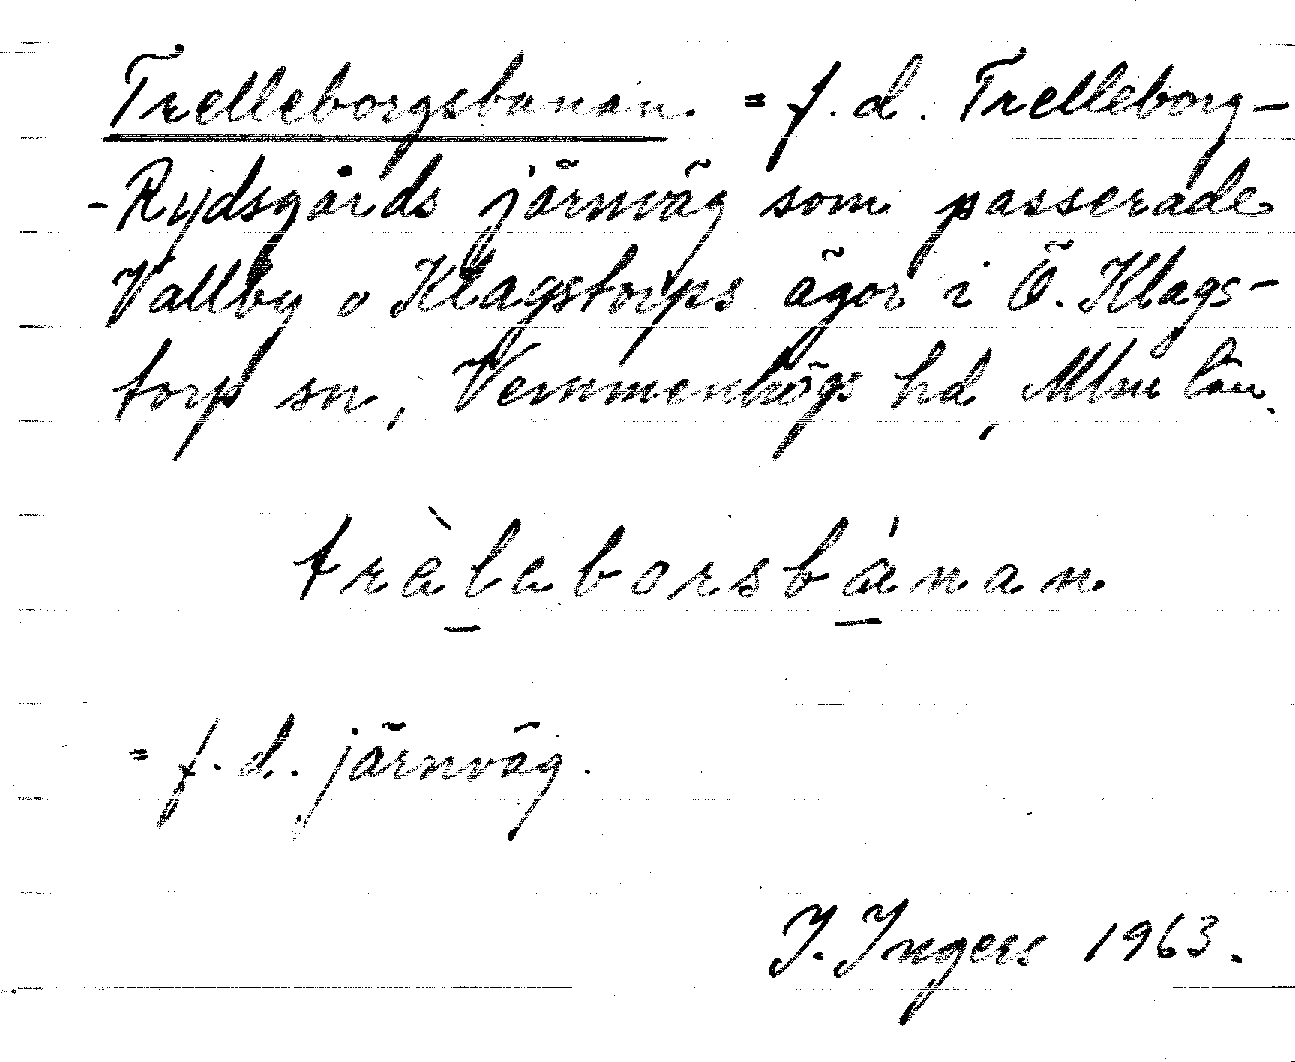 Trelleborgsbanan. = f. d. Trelleborg-
-Rydsgårds järnväg som passerade
Vallby o Klagstorps ägor i Ö. Klags-
torp sn, Vemmenhögs hd, Mlm län.
trèleborsbánan
= f. d. järnväg.
I. Ingers 1963.